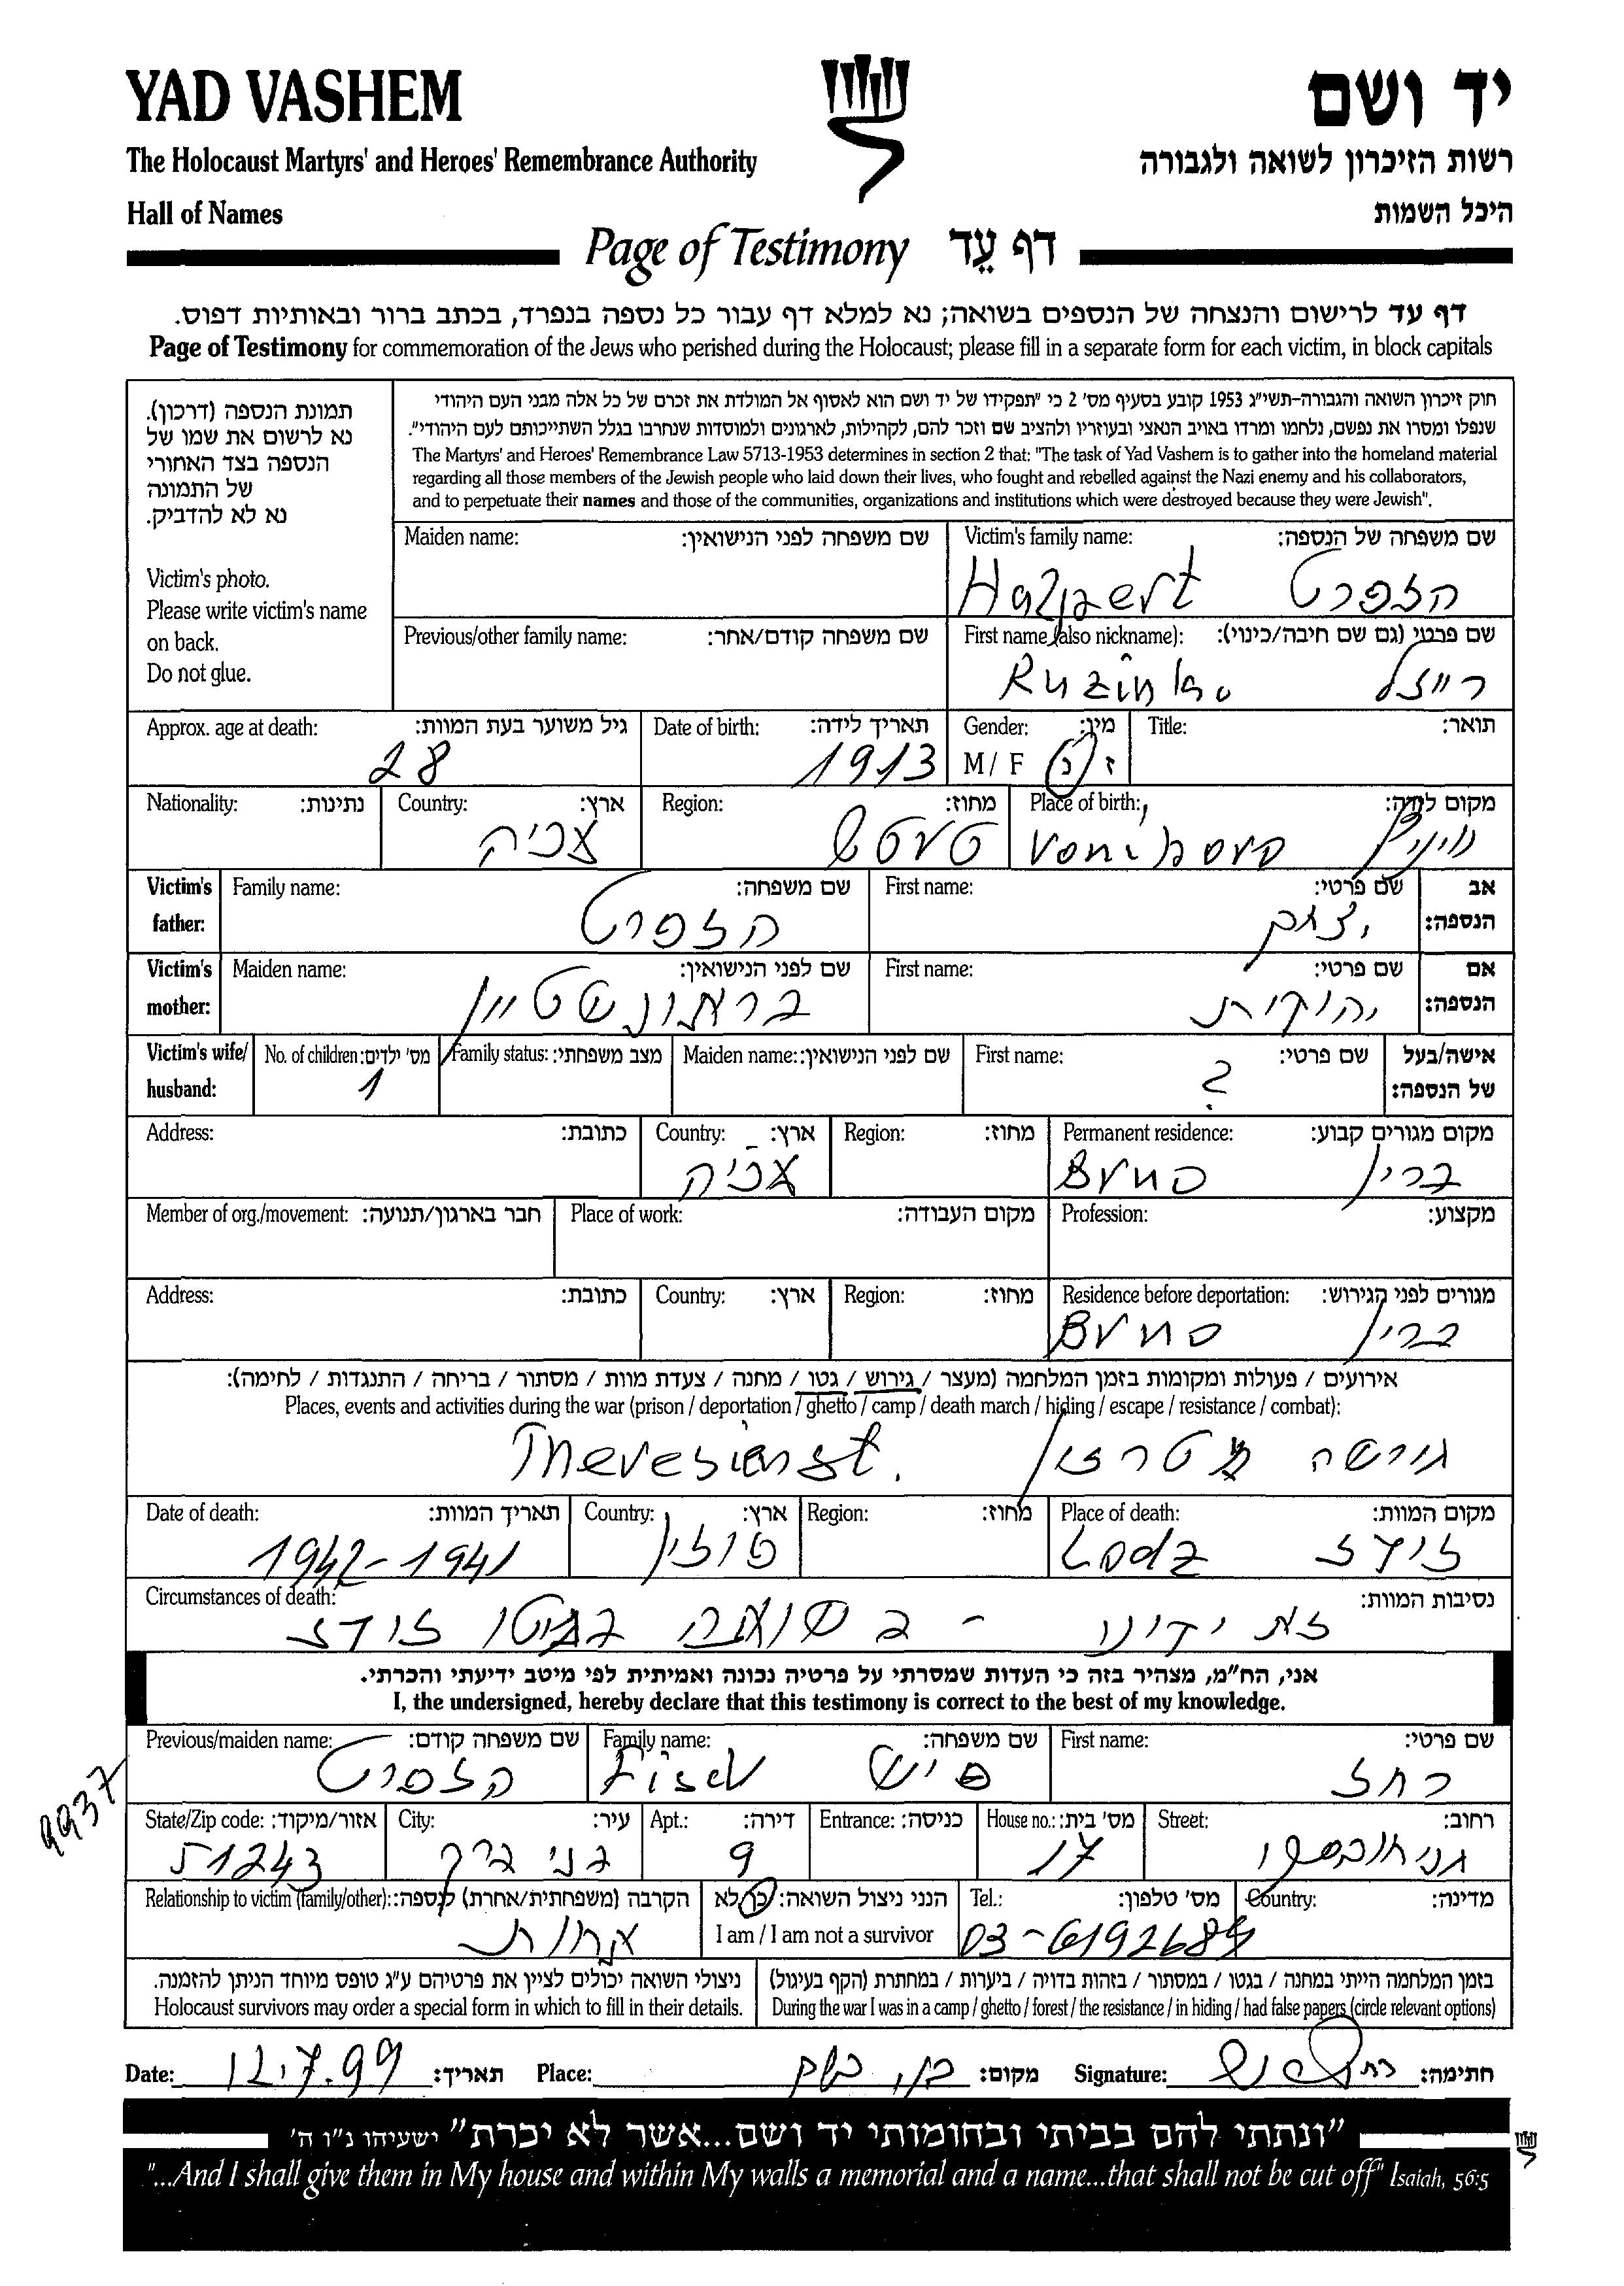 YAD VASHEM
יד ושם
The Holocaust Martyrs' and Heroes' Remembrance Authority
רשות הזיכרון לשואה ולגבורה
Hall of Names
היכל השמות
Page of Testimony דף עֵד
דף עד לרישום והנצחה של הנספים בשואה; נא למלא דף עבור כל נספה בנפרד, בכתב ברור ובאותיות דפוס.
Page of Testimony for commemoration of the Jews who perished during the Holocaust; please fill in a separate form for each victim, in block capitals
תמונת הנספה (דרכון).
נא לרשום את שמו של
הנספה בצד האחורי
של התמונה
נא לא להדביק.
Victim's photo.
Please write victim's name
on back.
Do not glue.
חוק זיכרון השואה והגבורה-תשי"ג 1953 קובע בסעיף מס' 2 כי "תפקידו של יד ושם הוא לאסוף אל המולדת את זכרם של כל אלה מבני העם היהודי
שנפלו ומסרו את נפשם, נלחמו ומרדו באויב הנאצי ובעוזריו ולהציב שם וזכר להם, לקהילות, לארגונים ולמוסדות שנחרבו בגלל השתייכותם לעם היהודי".
The Martyrs' and Heroes' Remembrance Law 5713-1953 determines in section 2 that: "The task of Yad Vashem is to gather into the homeland material
regarding all those members of the Jewish people who laid down their lives, who fought and rebelled against the Nazi enemy and his collaborators,
and to perpetuate their names and those of the communities, organizations and institutions which were destroyed because they were Jewish".
Maiden name: שם משפחה לפני הנישואין: Victim's family name: שם משפחה של הנספה:
Halpert הלפרט
Previous/other family name: שם משפחה קודם/אחר: First name (also nickname): שם פרטי (גם שם חיבה/כינוי):
Ruzinka רייזל
Approx. age at death: גיל משוער בעת המוות: Date of birth: תאריך לידה: Gender: מין: Title: תואר:
28 1913 M / F ז נ
Nationality: נתינות: Country: ארץ: Region: מחוז: Place of birth: מקום לידה:
צכיה
Victim's father: Family name: שם משפחה: First name: שם פרטי: אב הנספה:
הלפרט יצחק
Victim's mother: Maiden name: שם לפני הנישואין: First name: שם פרטי: אם הנספה:
בראונשטיין יהודית
Victim's wife/ husband: No. of children: מס' ילדים: Family status: מצב משפחתי: Maiden name: שם לפני הנישואין: First name: שם פרטי: אישה/בעל של הנספה:
1 ?
Address: כתובת: Country: ארץ: Region: מחוז: Permanent residence: מקום מגורים קבוע:
צכיה Brno ברין
Member of org./movement: חבר בארגון/תנועה: Place of work: מקום העבודה: Profession: מקצוע:
Address: כתובת: Country: ארץ: Region: מחוז: Residence before deportation: מגורים לפני הגירוש:
Brno ברין
אירועים / פעולות ומקומות בזמן המלחמה (מעצר / גירוש / גטו / מחנה / צעדת מוות / מסתור / בריחה / התנגדות / לחימה):
Places, events and activities during the war (prison / deportation / ghetto / camp / death march / hiding / escape / resistance / combat):
Theresienst. גורשה
Date of death: תאריך המוות: Country: ארץ: Region: מחוז: Place of death: מקום המוות:
1942-1941 פולין Lodz לודז
Circumstances of death: נסיבות המוות:
לא ידוע - בשואה בגיטו לודז
אני, הח"מ, מצהיר בזה כי העדות שמסרתי על פרטיה נכונה ואמיתית לפי מיטב ידיעתי והכרתי.
I, the undersigned, hereby declare that this testimony is correct to the best of my knowledge.
Previous/maiden name: שם משפחה קודם: Family name: שם משפחה: First name: שם פרטי:
הלפרט פיש רחל
9937
State/Zip code: אזור/מיקוד: City: עיר: Apt.: דירה: Entrance: כניסה: House no.: מס' בית: Street: רחוב:
51243 בני ברק 9 17
Relationship to victim (family/other): הקרבה (משפחתית/אחרת) לנספה: הנני ניצול השואה: כן/לא Tel.: מס' טלפון: Country: מדינה:
אחות I am / I am not a survivor 03-6192684
בזמן המלחמה הייתי במחנה / בגטו / במסתור / בזהות בדויה / ביערות / במחתרת (הקף בעיגול)
During the war I was in a camp / ghetto / forest / the resistance / in hiding / had false papers (circle relevant options)
ניצולי השואה יכולים לציין את פרטיהם ע"ג טופס מיוחד הניתן להזמנה.
Holocaust survivors may order a special form in which to fill in their details.
Date: 12.7.99 תאריך: Place: בני ברק מקום: Signature: חתימה:
"ונתתי להם בביתי ובחומותי יד ושם...אשר לא יכרת" ישעיהו נ"ו ה'
"...And I shall give them in My house and within My walls a memorial and a name...that shall not be cut off" Isaiah, 56:5